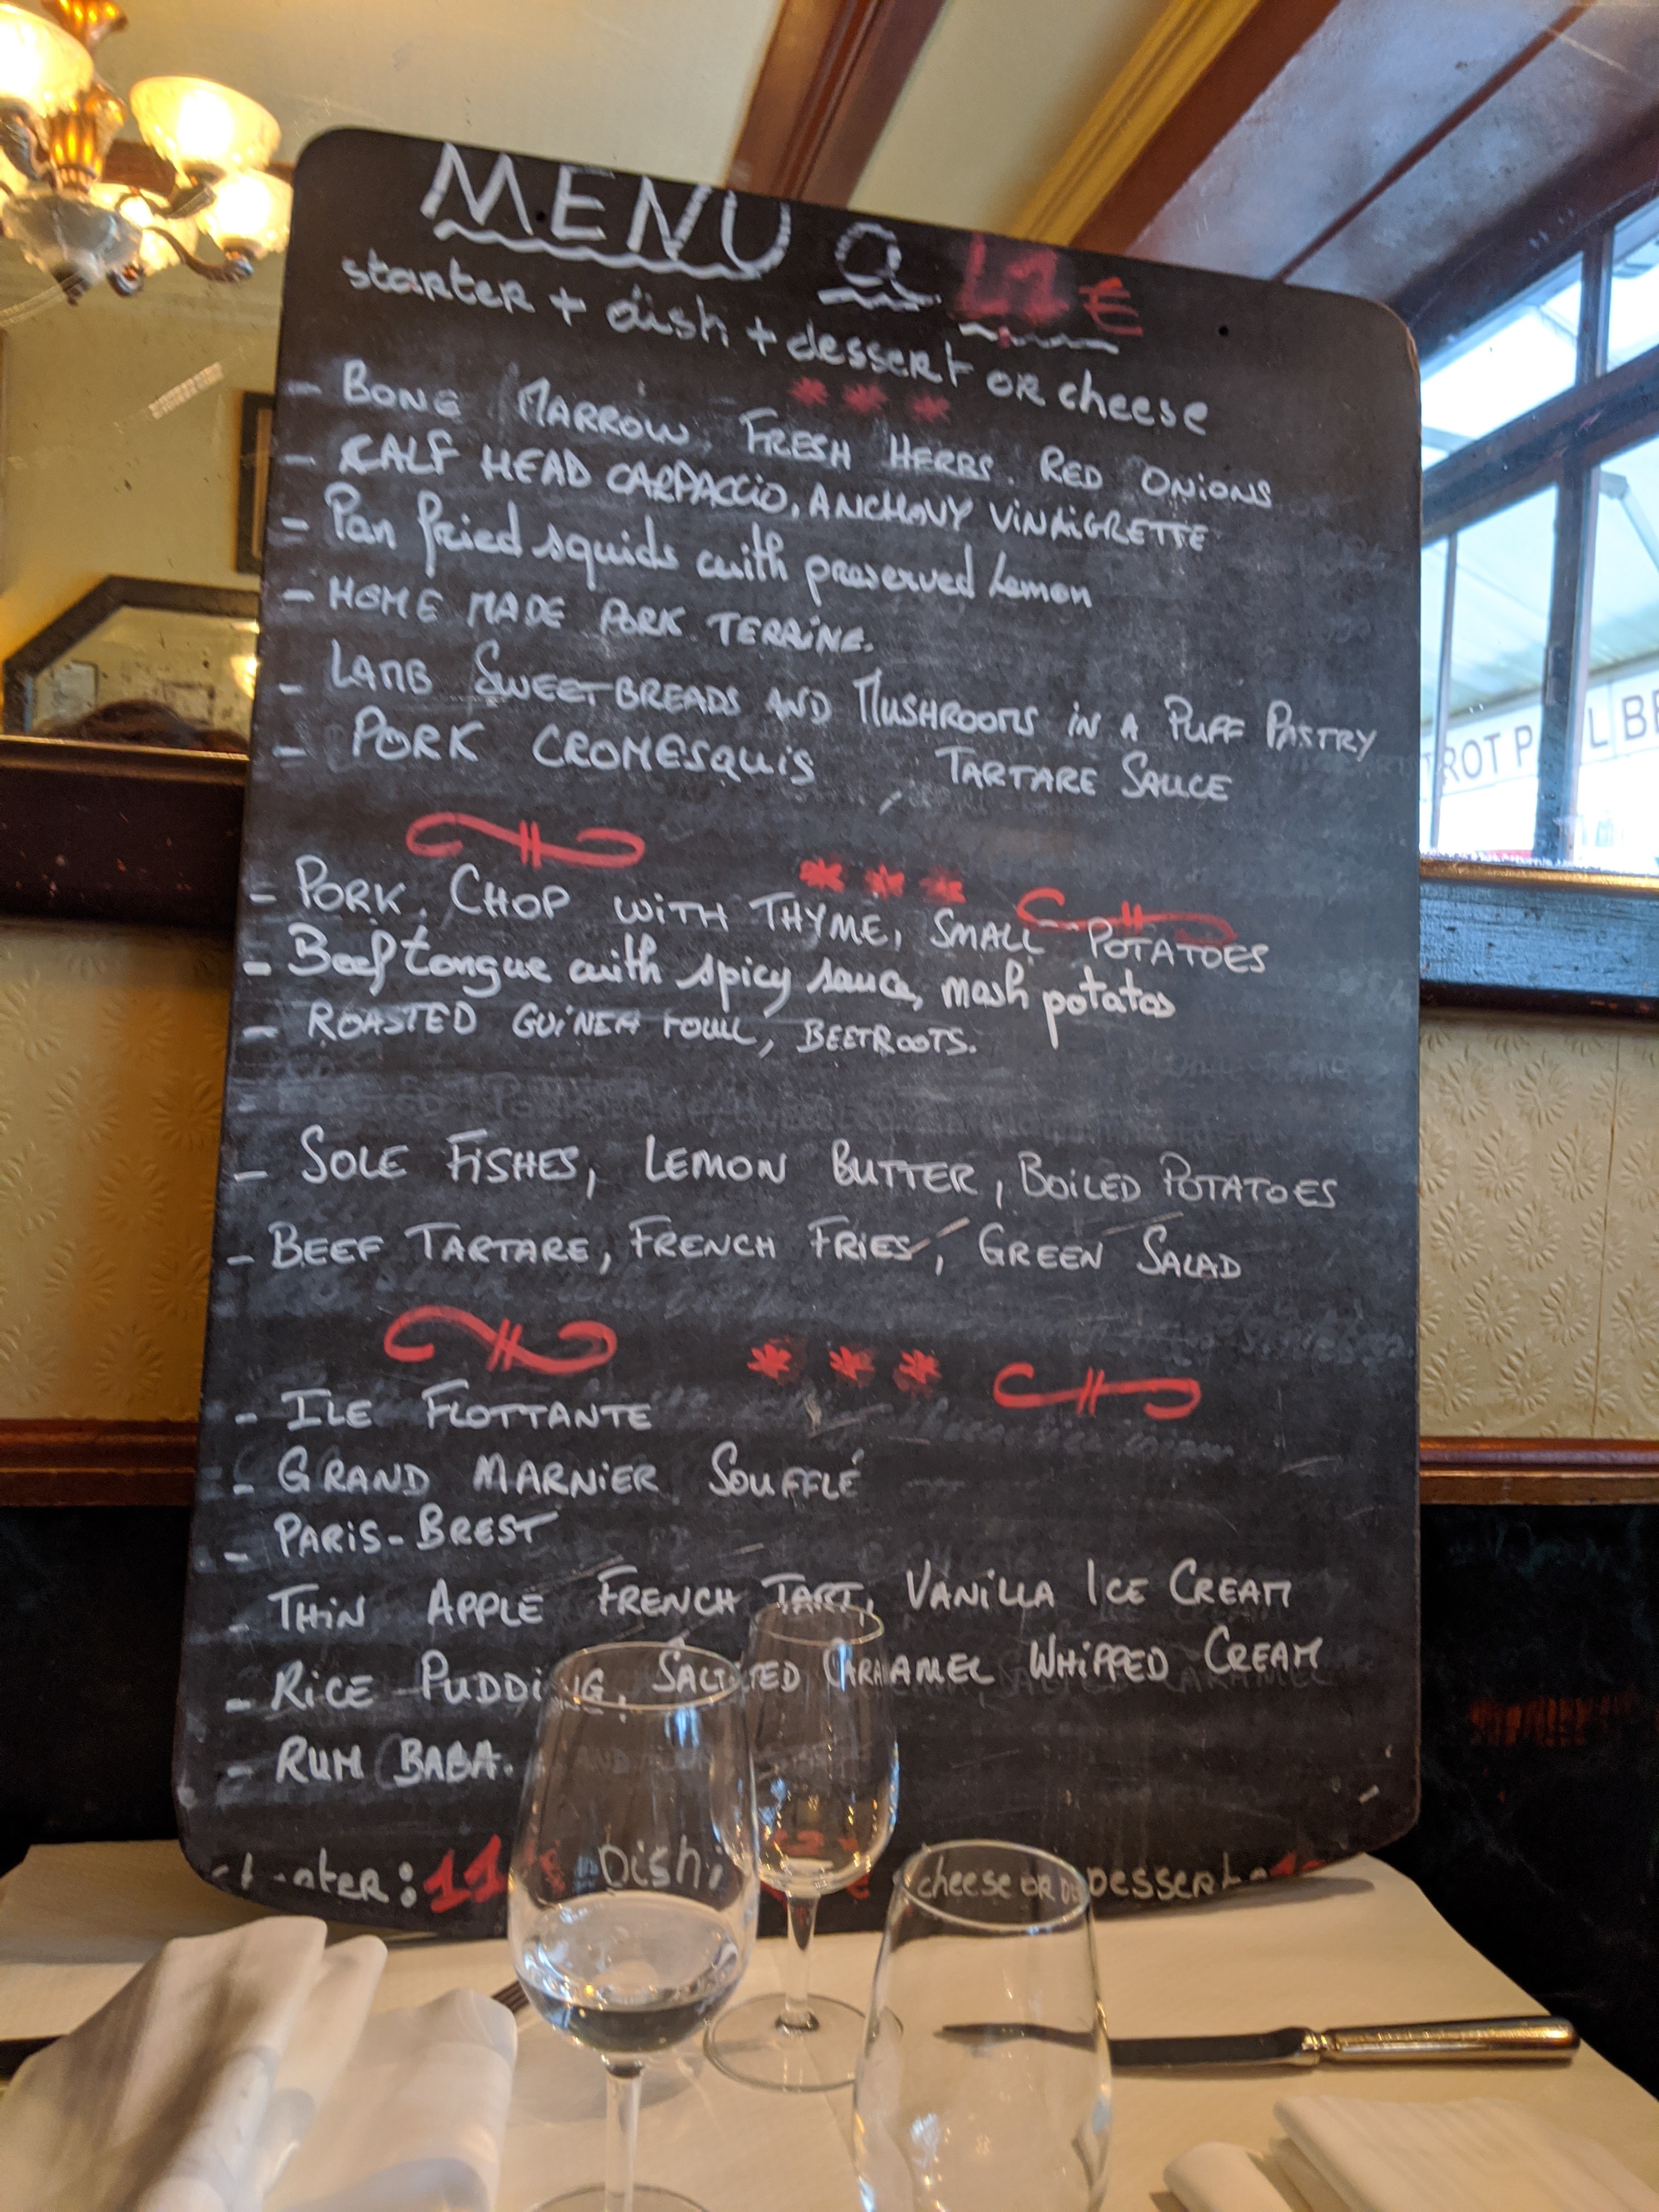 MENU a €
starter + dish + dessert or cheese
- BONE MARROW, FRESH HERBS, RED ONIONS
- CALF HEAD CARPACCIO, ANCHOVY VINAIGRETTE
- Pan fried squids with preserved lemon
- HOME MADE PORK TERRINE.
- LAMB SWEETBREADS AND MUSHROOMS IN A PUFF PASTRY
- PORK CROMESQUIS TARTARE SAUCE
- PORK CHOP WITH THYME, SMALL POTATOES
- Beef tongue with spicy sauce, mash potatos
- ROASTED GUINEA FOWL, BEETROOTS.
- SOLE FISHES, LEMON BUTTER, BOILED POTATOES
- BEEF TARTARE, FRENCH FRIES, GREEN SALAD
- ILE FLOTTANTE
- GRAND MARNIER SOUFFLÉ
- PARIS-BREST
- THIN APPLE FRENCH TART, VANILLA ICE CREAM
- RICE PUDDING, SALTED CARAMEL WHIPPED CREAM
- RUM BABA.
starter: 11 € Dish: € cheese or Dessert